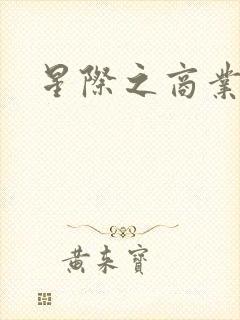 星際之商業
黃東寶